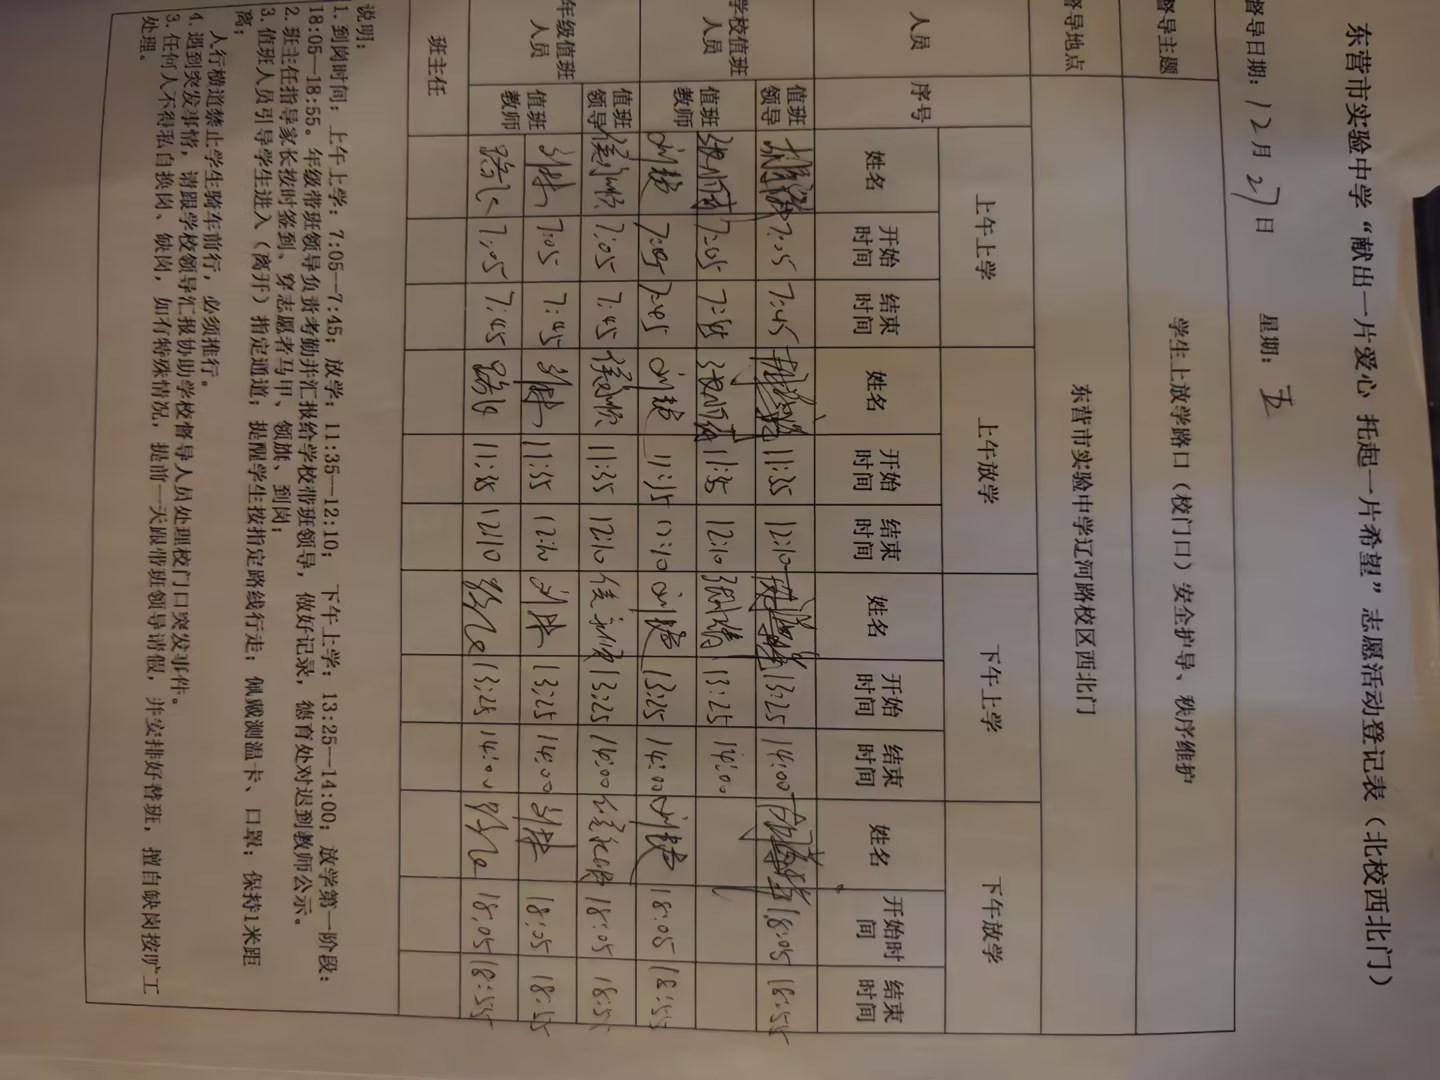 东营市实验中学“献出一片爱心 托起一片希望”志愿活动登记表（北校西北门）
督导日期：12月27日 星期：五
督导主题 学生上放学路口（校门口）安全护导、秩序维护
督导地点 东营市实验中学辽河路校区西北门
人员 序号 上午上学 上午放学 下午上学 下午放学
姓名 开始时间 结束时间 姓名 开始时间 结束时间 姓名 开始时间 结束时间 姓名 开始时间 结束时间
学校值班人员 值班领导 7:05 7:45 11:35 12:10 13:25 14:00 18:05 18:55
值班教师 7:05 7:45 11:35 12:10 13:25 14:00
刘捷 7:05 7:45 刘捷 11:35 12:10 刘捷 13:25 14:00 刘捷 18:05 18:55
年级值班人员 值班领导 7:05 7:45 11:35 12:10 13:25 14:00 18:05 18:55
值班教师 7:05 7:45 11:35 12:10 13:25 14:00 18:05 18:55
7:05 7:45 11:35 12:10 13:25 14:00 18:05 18:55
班主任
说明：
1. 到岗时间：上午上学：7:05—7:45；放学：11:35—12:10； 下午上学：13:25—14:00；放学第一阶段：
18:05—18:55。年级带班领导负责考勤并汇报给学校带班领导，做好记录，德育处对迟到教师公示。
2. 班主任指导家长按时签到、穿志愿者马甲、领旗、到岗；
3. 值班人员引导学生进入（离开）指定通道；提醒学生按指定路线行走；佩戴测温卡、口罩；保持1米距
离；
人行横道禁止学生骑车前行，必须推行。
4. 遇到突发事情，请跟学校领导汇报协助学校督导人员处理校门口突发事件。
3. 任何人不得私自换岗、缺岗，如有特殊情况，提前一天跟带班领导请假，并安排好替班，擅自缺岗按旷工
处理。